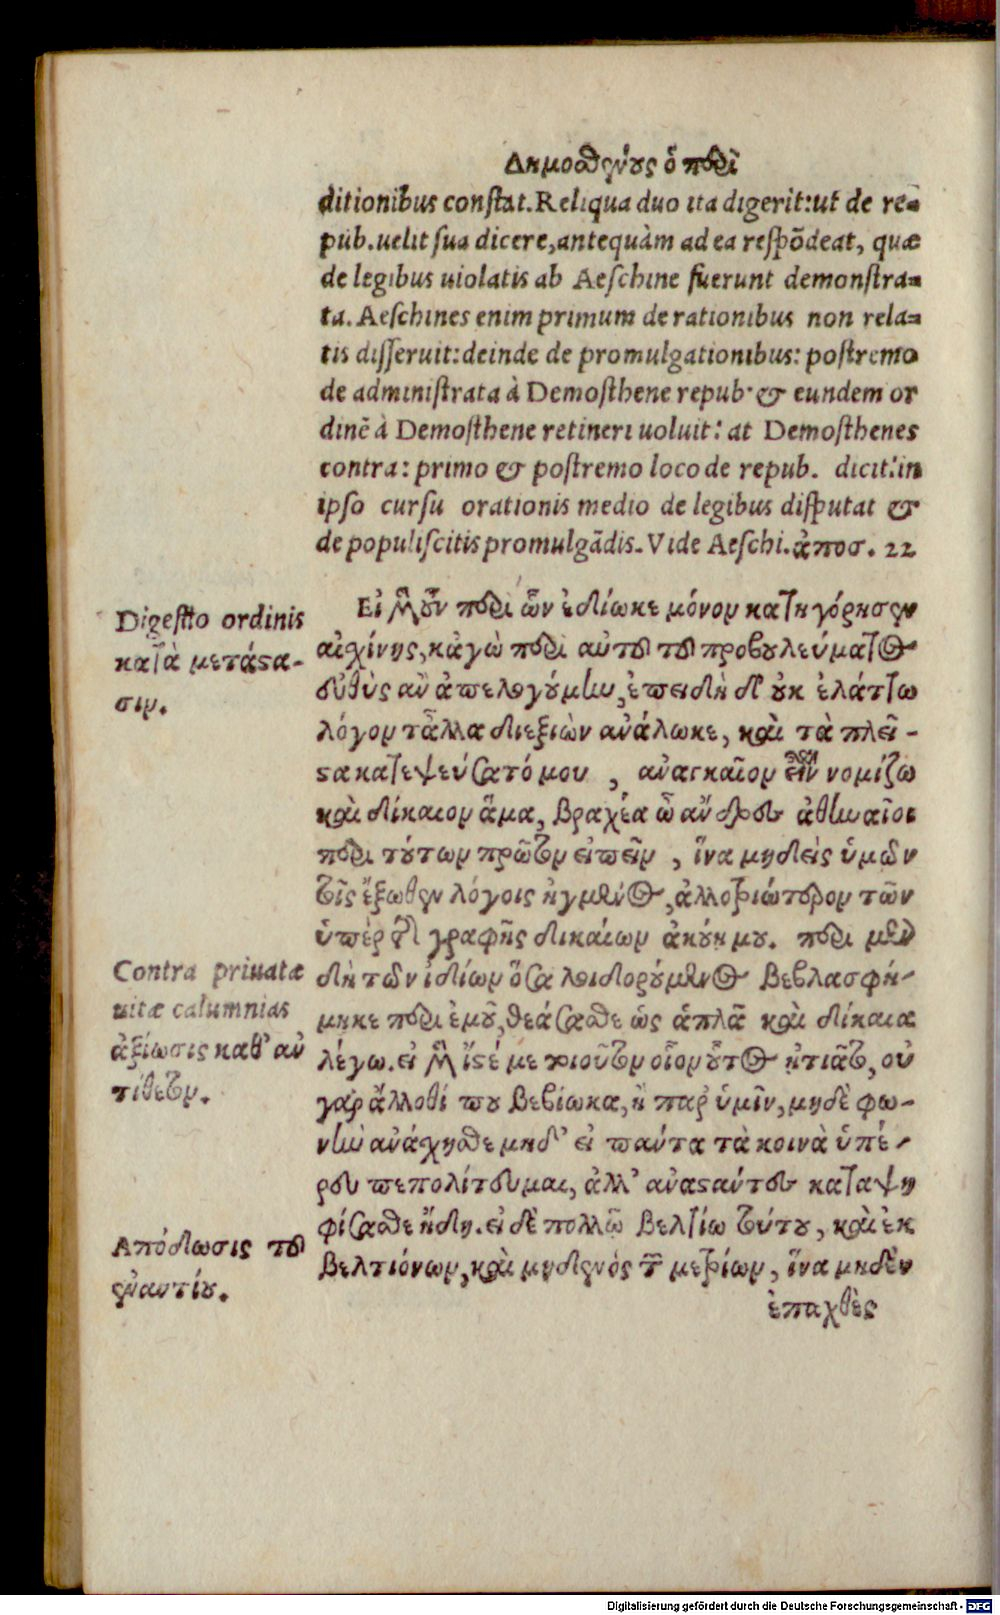 Δημοσθένους ὁ περὶ
ditionibus constat. Reliqua duo ita digerit: ut de re=
pub. uelit sua dicere, antequàm ad ea respõdeat, quæ
de legibus uiolatis ab Aeschine fuerunt demonstra=
ta. Aeschines enim primum de rationibus non rela=
tis disseruit: deinde de promulgationibus: postremo
de administrata à Demosthene repub. & eundem or
dinẽ à Demosthene retineri uoluit: at Demosthenes
contra: primo & postremo loco de repub. dicit: in
ipso cursu orationis medio de legibus disputat &
de populiscitis promulgãdis. Vide Aeschi. ἀποσ. 22
Digestio ordinis
κατὰ μετάστα-
σιν.
Εἰ μὲν οὖν περὶ ὧν ἐδίωκε μόνον κατηγόρησεν
αἰσχίνης, κἀγὼ περὶ αὐτοῦ τοῦ προβουλεύματος
εὐθὺς ἂν ἀπελογούμην, ἐπειδὴ δ' οὐκ ἐλάττω
λόγον τἆλλα διεξιὼν ἀνάλωκε, καὶ τὰ πλεῖ-
στα κατεψεύσατό μου, ἀναγκαῖον εἶναι νομίζω
καὶ δίκαιον ἅμα, βραχέα ὦ ἄνδρες ἀθηναῖοι
περὶ τούτων πρῶτον εἰπεῖν, ἵνα μηδεὶς ὑμῶν
τοῖς ἔξωθεν λόγοις ἠγμένος, ἀλλοτριώτερον τῶν
ὑπὲρ τῆς γραφῆς δικαίων ἀκούῃ μου. περὶ μὲν
Contra priuatæ
uitæ calumnias
ἀξίωσις καθ' ἀν
τίθετον.
δὴ τῶν ἰδίων ὅσα λοιδορούμενος βεβλασφή-
μηκε περὶ ἐμοῦ, θεάσασθε ὡς ἁπλᾶ καὶ δίκαια
λέγω. εἰ μὲν ἴστέ με τοιοῦτον οἷον οὗτος ᾐτιᾶτο, οὐ
γὰρ ἄλλοθί που βεβίωκα, ἢ παρ' ὑμῖν, μηδὲ φω-
νὴν ἀνάσχησθε μηδ' εἰ πάντα τὰ κοινὰ ὑπέ-
ρευ πεπολίτευμαι, ἀλλ' ἀναστάντες καταψη
φίσασθε ἤδη. εἰ δὲ πολλῷ βελτίω τούτου, καὶ ἐκ
Ἀπόδωσις τοῦ
ἐναντίου.
βελτιόνων, καὶ μηδενὸς τῶν μετρίων, ἵνα μηδὲν
ἐπαχθὲς
Digitalisierung gefördert durch die Deutsche Forschungsgemeinschaft - DFG